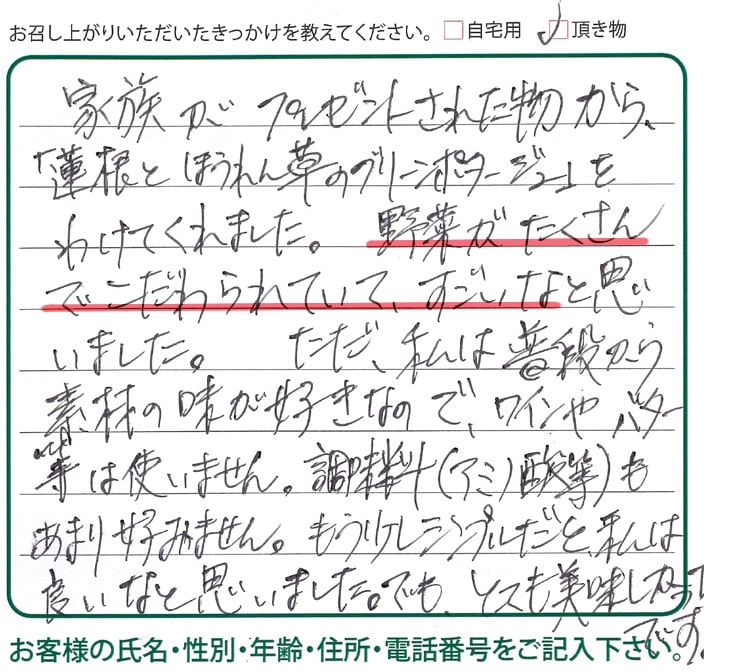 お召し上がりいただいたきっかけを教えてください。 □自宅用 ☑頂き物
家族が プレゼントされた物から、
「蓮根とほうれん草のグリーンポタージュ」を
わけてくれました。 野菜が たくさん
でこだわられていて、すごいなと思
いました。 ただ、私は普段から
素材の味が好きなので、ワインやバター
等は使いません。調味料(アミノ酸等)も
あまり好みません。もう少しシンプルだと、私は
良いなと思いました。でも、とても美味しかった
です。
お客様の氏名・性別・年齢・住所・電話番号をご記入下さい。